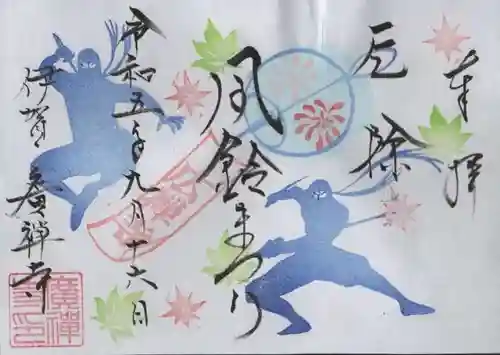 奉拝
厄除
風鈴まつり
令和五年九月十六日
伊賀 廣禅寺
廣禅